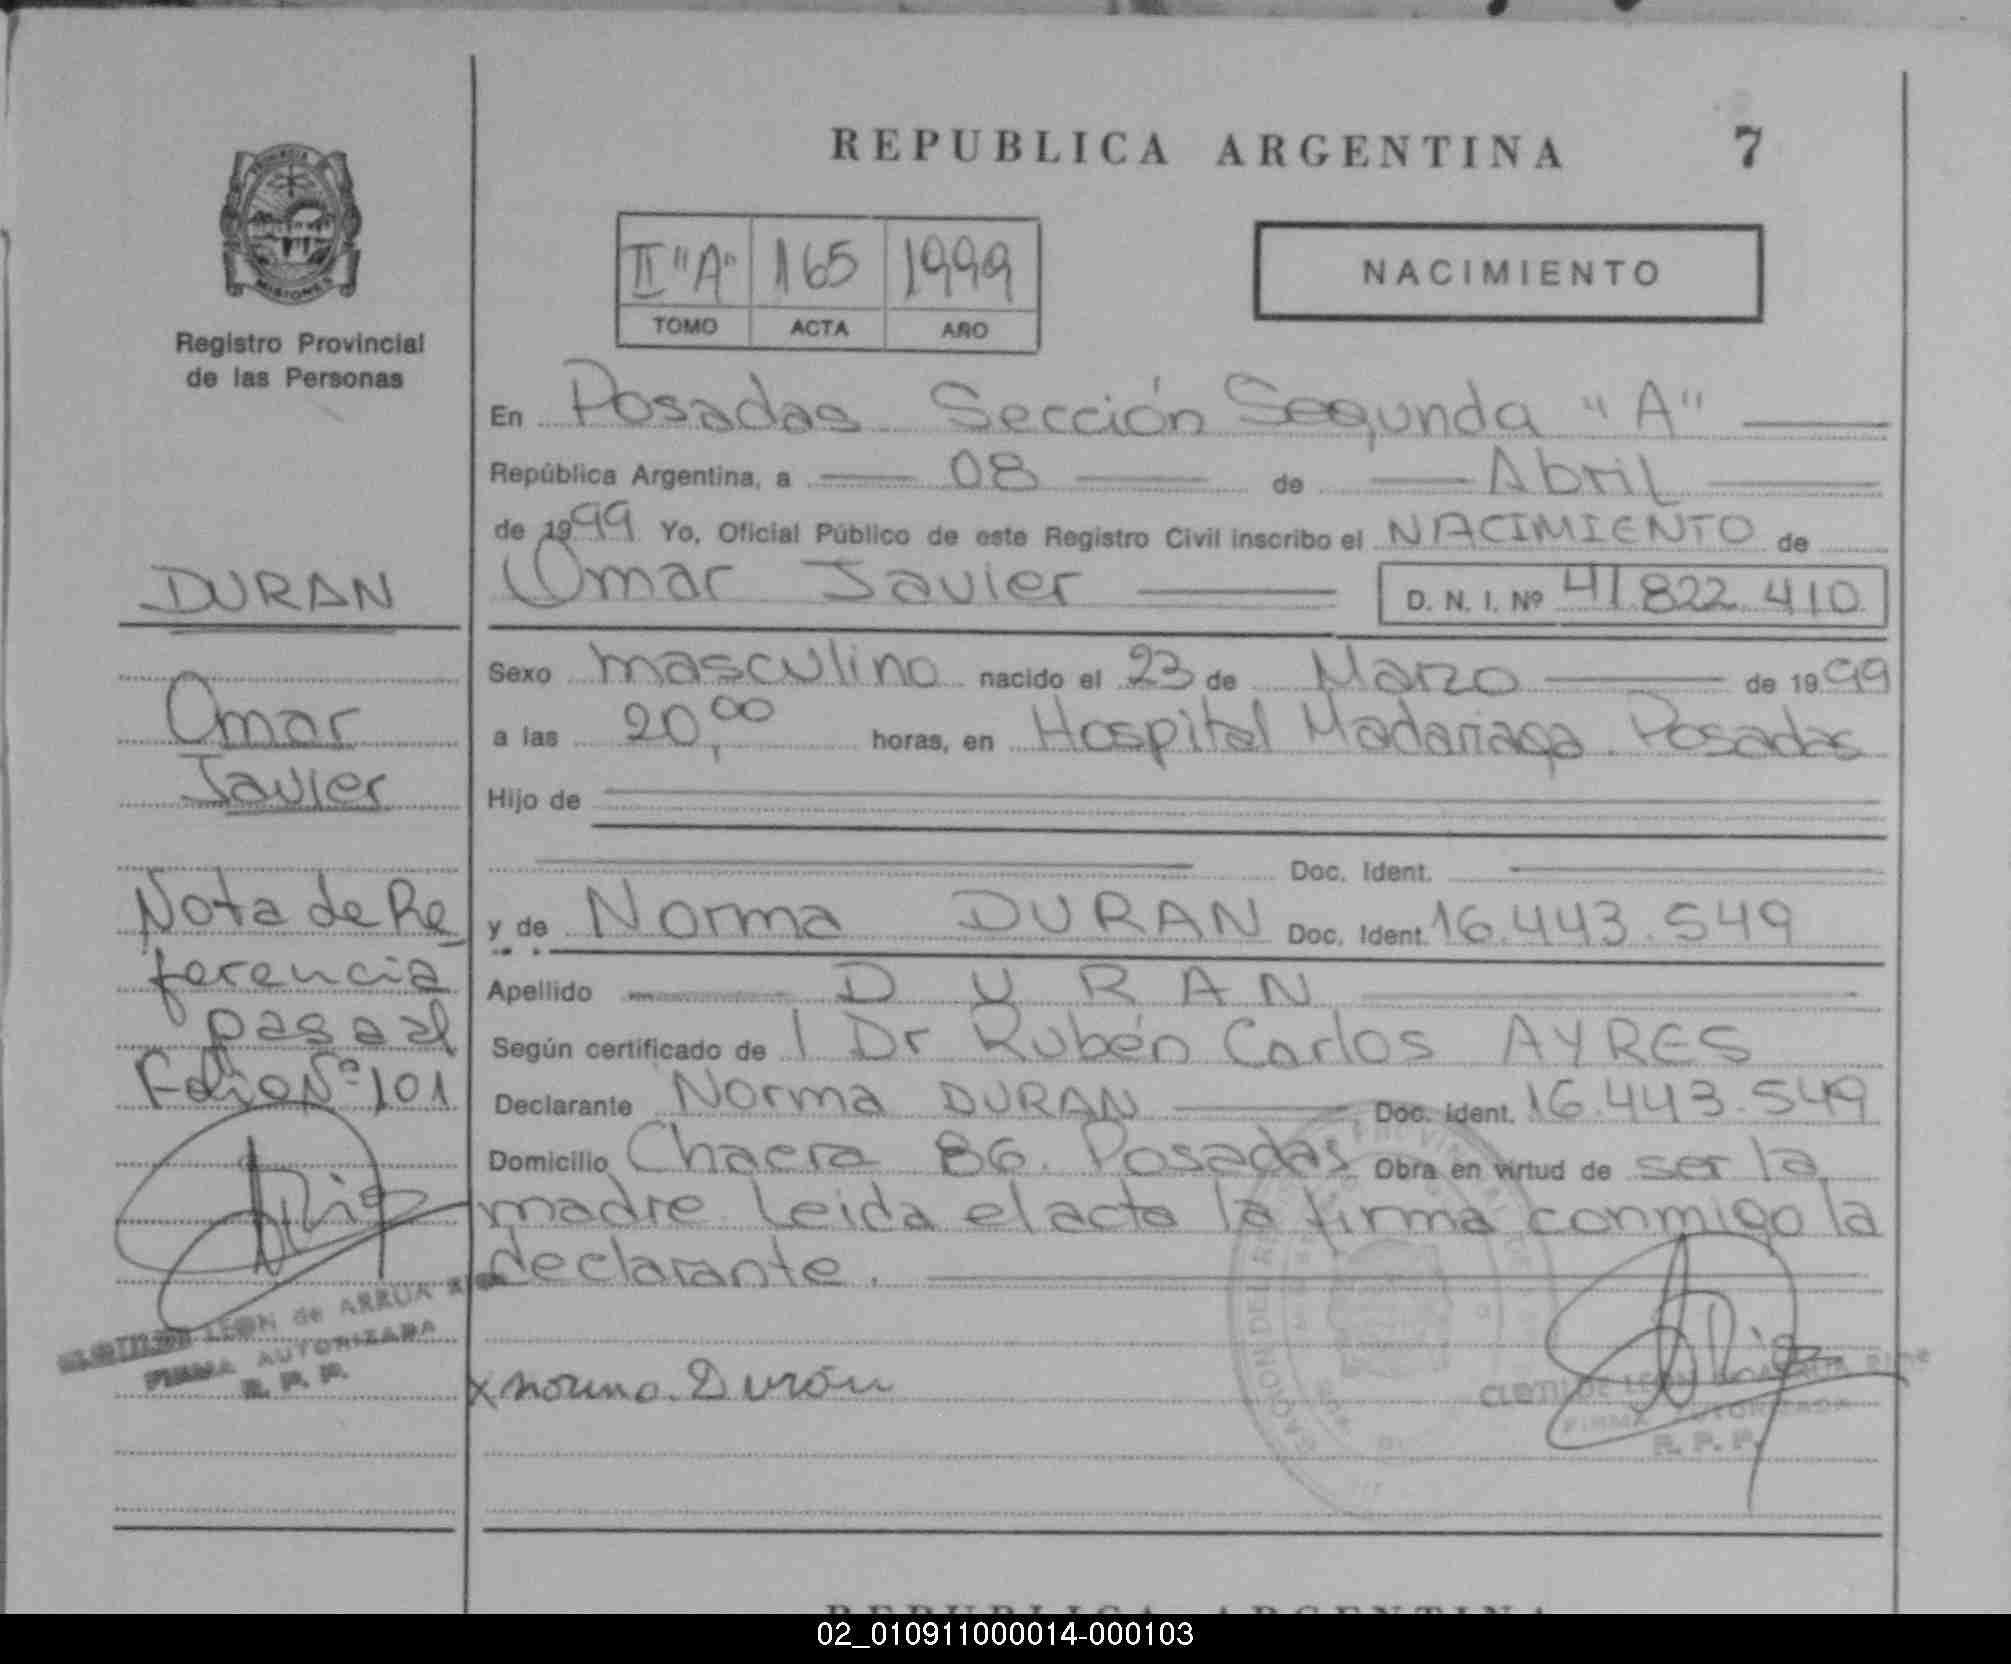 REPUBLICA ARGENTINA 7
MISIONES
Registro Provincial
de las Personas
II "A" 165 1999
TOMO ACTA AÑO
NACIMIENTO
En Posadas Sección Segunda "A"
República Argentina, a 08 de Abril
de 1999 Yo, Oficial Público de este Registro Civil inscribo el NACIMIENTO de
Omar Javier D. N. I. Nº 41.822.410
Sexo masculino nacido el 23 de Marzo de 1999
a las 20,00 horas, en Hospital Madariaga. Posadas
Hijo de
Doc. Ident.
y de Norma DURAN Doc. Ident. 16.443.549
Apellido DURAN
Según certificado de l Dr Rubén Carlos AYRES
Declarante Norma DURAN Doc. Ident. 16.443.549
Domicilio Chacra 86. Posadas Obra en virtud de ser la
madre. Leida el acta la firma conmigo la
declarante.
x norma. Durán
CLOTILDE LEON de ARRUA
FIRMA AUTORIZADA
R. P. P.
DURAN
Omar
Javier
Nota de Re
ferencia
pasa al
Folio Nº 101
CLOTILDE LEON de ARRUA
FIRMA AUTORIZADA
R. P. P.
REPUBLICA ARGENTINA
02_010911000014-000103